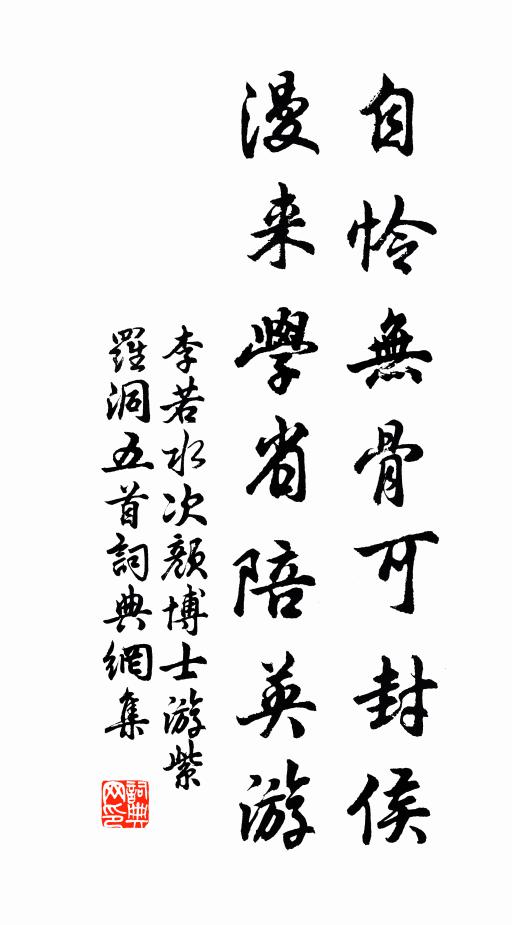 自怜無骨可封侯
漫来學省陪英游
李若水次顏博士游紫
羅洞五首詞典網集
詞典
网印